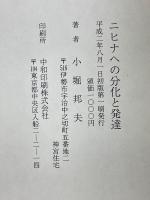 ニヒナヘの分化と発達
平成二年八月一日初版第一刷発行
頒価一〇〇〇円
著者 小堀邦夫
〒516伊勢市宇治中之切町五番地二
神宮住宅
印刷所 中和印刷株式会社
〒104東京都中央区入船二-二-一四